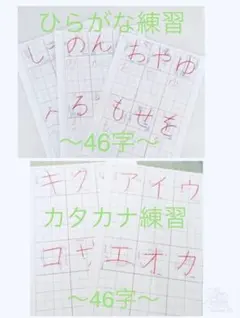 ひらがな練習
し のん おやゆ
る もせを
〜46字〜
キク アイウ
カタカナ練習
コ エオカ
〜46字〜